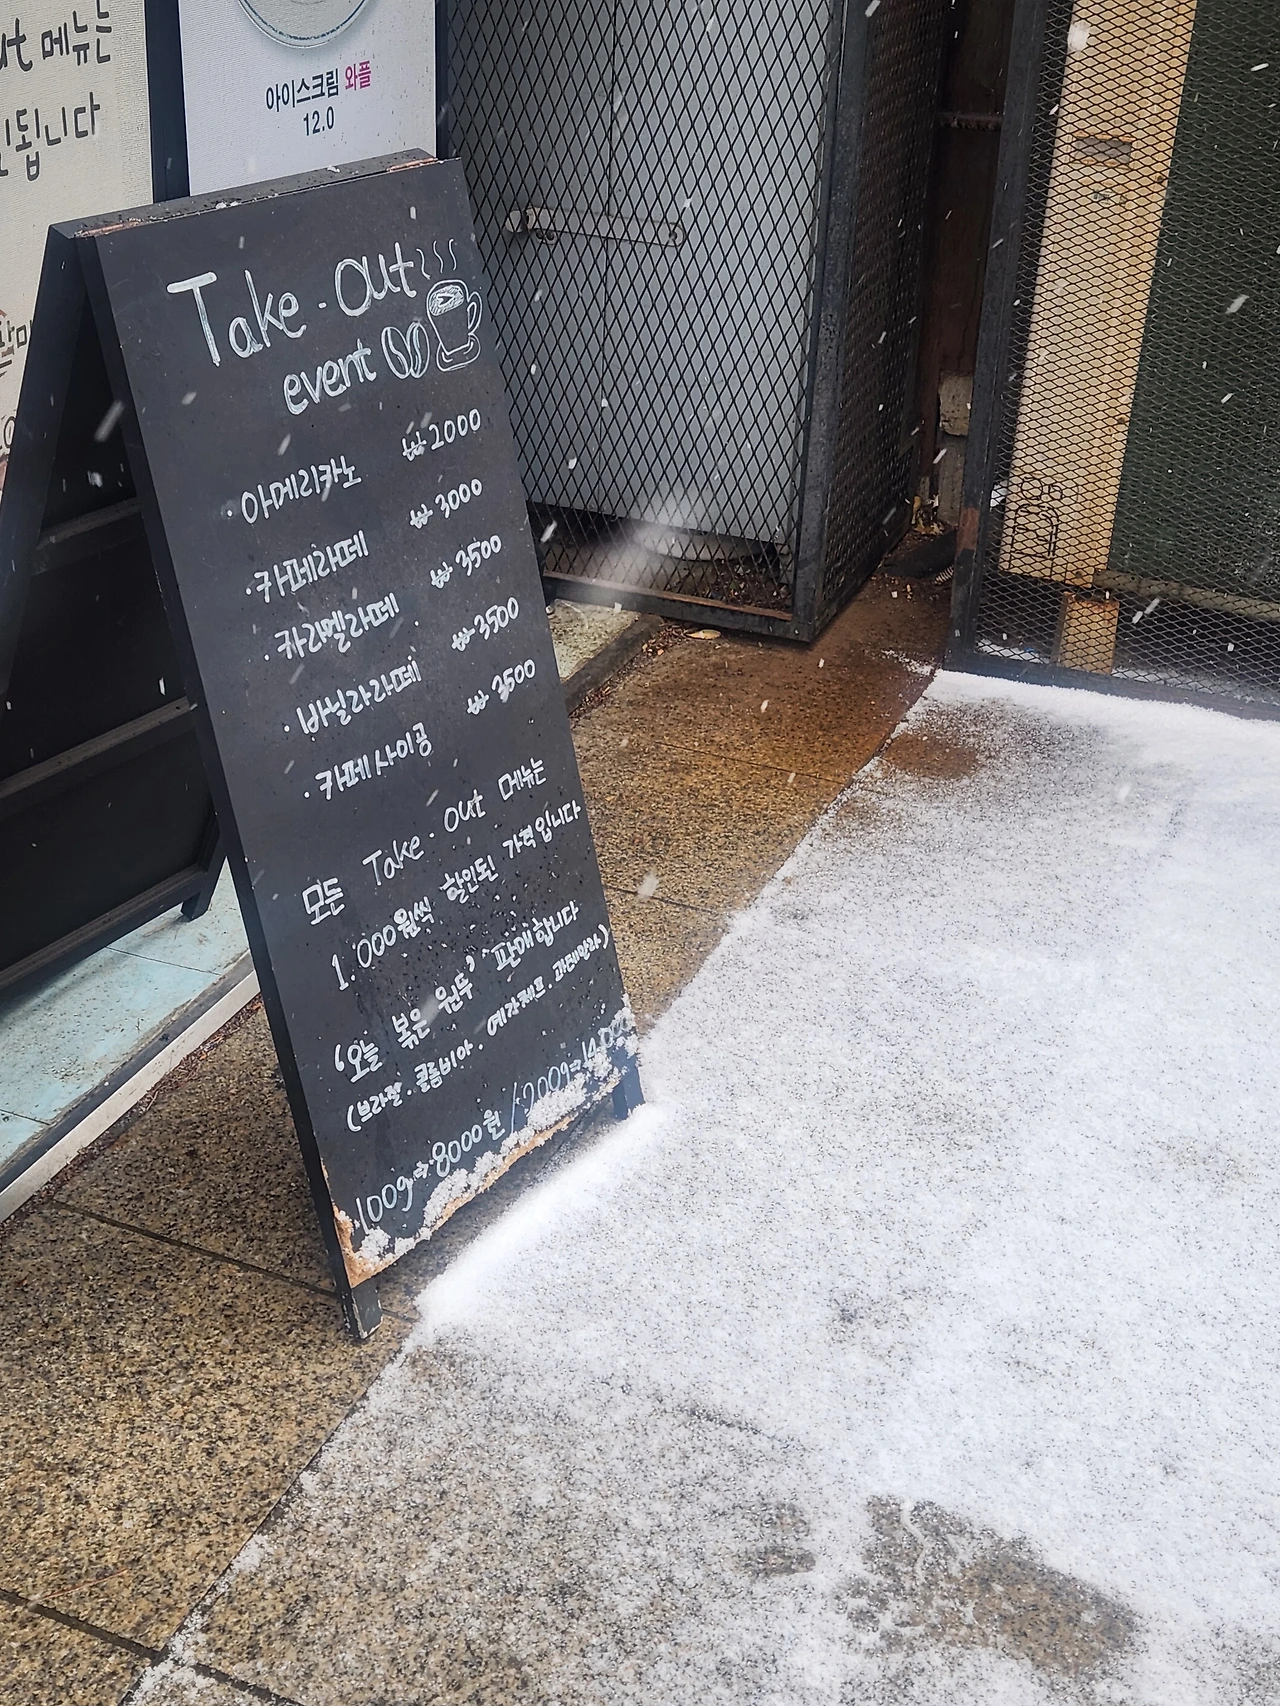 메뉴는
됩니다
아이스크림 와플
12.0
Take-Out
event
·아메리카노 ₩2000
·카페라떼 ₩3000
·카라멜라떼 ₩3500
·바닐라라떼 ₩3500
·카페사이공 ₩3500
모든 Take-Out 메뉴는
1.000원씩 할인된 가격입니다
'오늘 볶은 원두' 판매합니다
(브라질·콜롬비아·예가체프·과테말라)
100g⇒8000원/200g⇒14,000